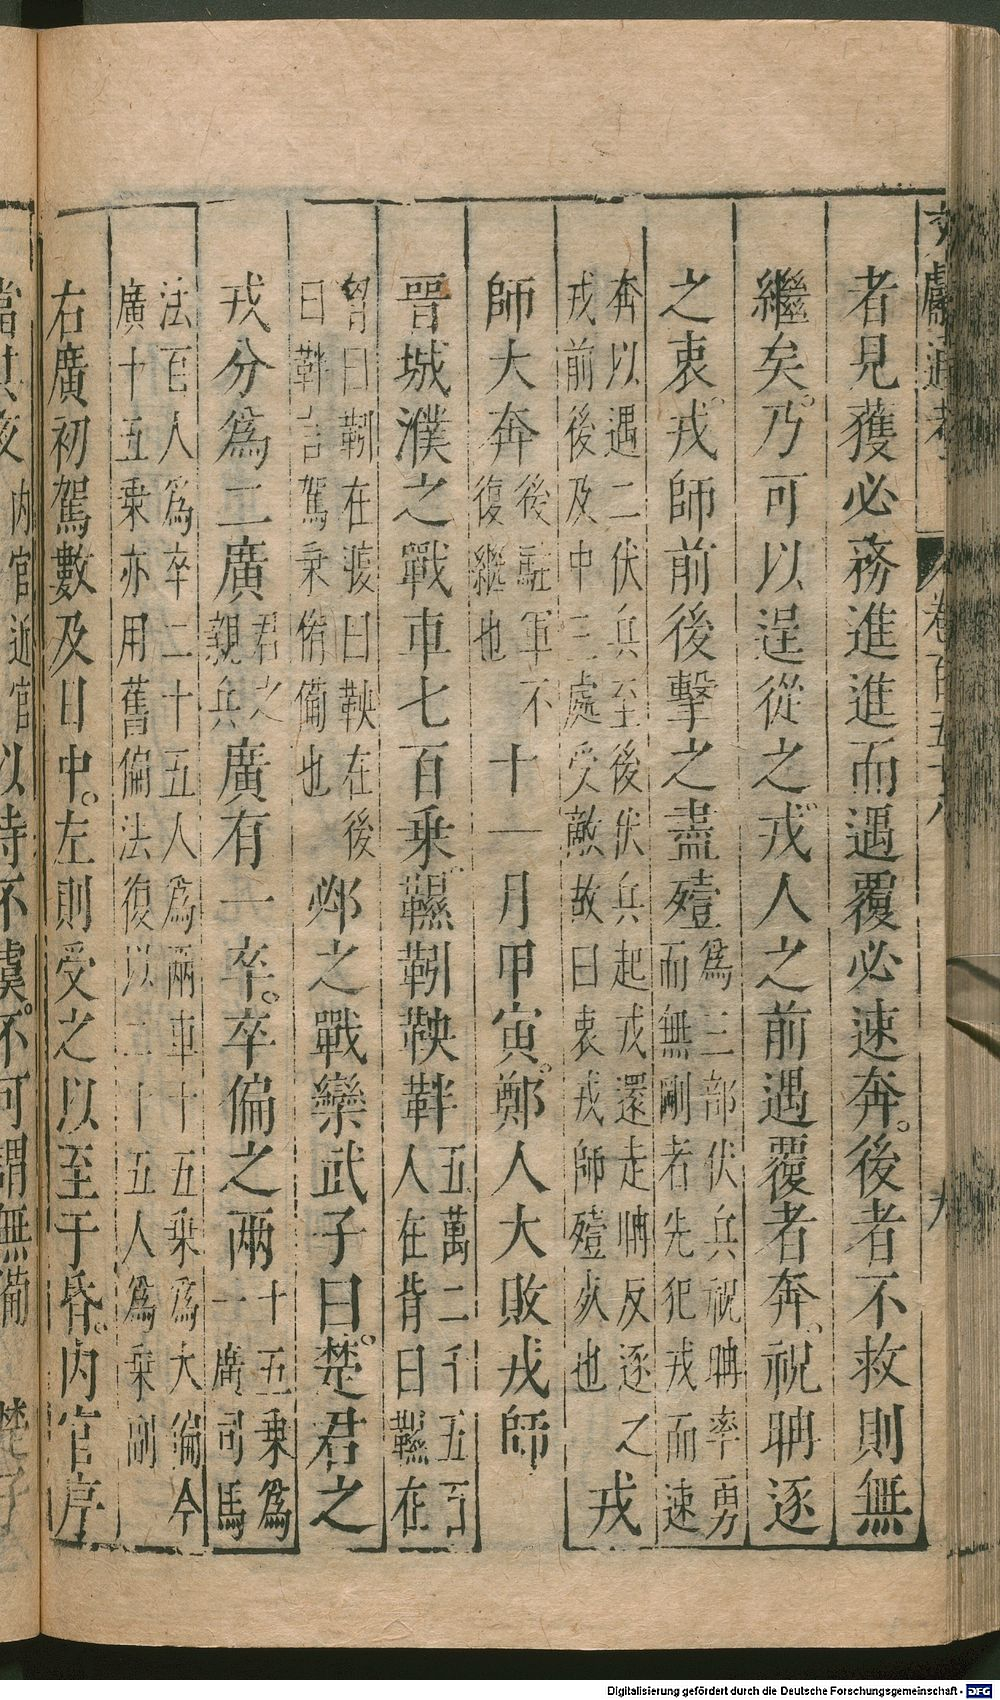 文獻通考 卷百五十八 九
者見獲必務進進而遇覆必速奔。後者不救則無
繼矣。乃可以逞從之。戎人之前遇覆者奔。祝聃逐
之衷。戎師前後擊之盡殪爲三部伏兵祝聃率勇
而無剛者先犯戎而速
奔以遇二伏兵至後伏兵起戎還走聃反逐之
戎前後及中三處受敵故曰衷戎師殪死也戎
師大奔後駐軍不
復繼也十一月甲寅。鄭人大敗戎師
晉城濮之戰車七百乘。韅靷鞅靽五萬二千五百
人在背曰韅在
胷曰靷在腹曰鞅在後
曰靽言駕乘脩備也邲之戰欒武子曰。楚君之
戎分爲二廣君之
親兵廣有一卒。卒偏之兩十五乘爲
一廣司馬
法百人爲卒二十五人爲兩車十五乘爲大偏今
廣十五乘亦用舊偏法復以二十五人爲乘副
右廣初駕數及日中。左則受之以至于昏。内官序
當其夜内官近官以待不虞。不可謂無備 楚子
Digitalisierung gefördert durch die Deutsche Forschungsgemeinschaft - DFG